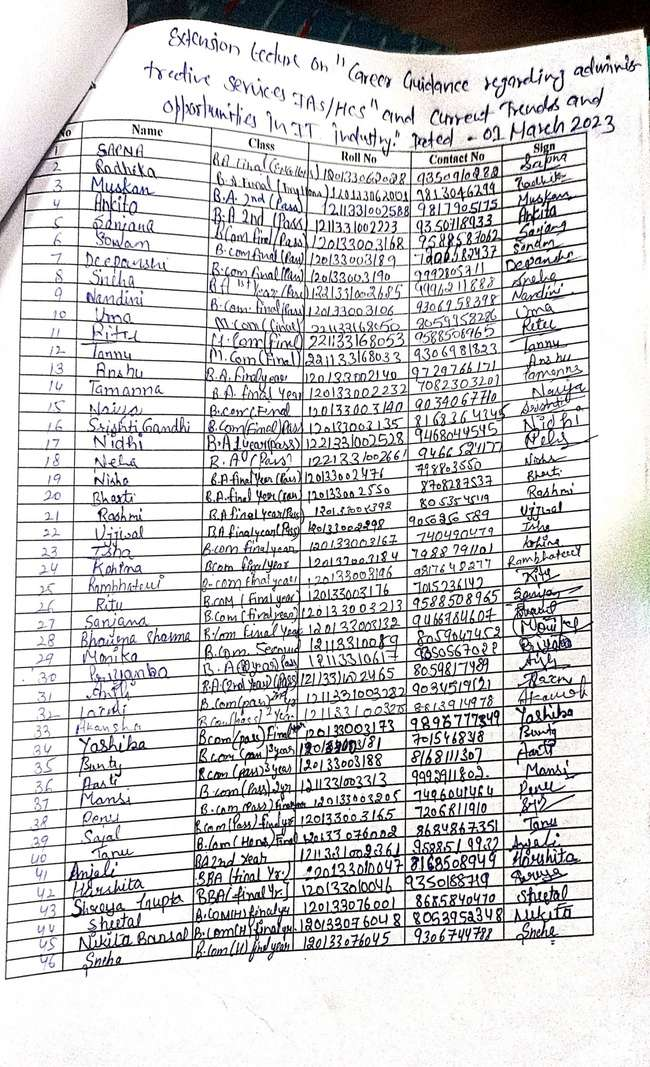 Extension Lecture on "Career Guidance regarding adminis
trative services IAS/HCS" and Current Trends and
opportunities In IT industry." Dated - 01 March 2023
No Name Class Roll No Contact No Sign
1 SAPNA B.A. Final 120133062028 9350910282 Sapna
2 Radhika B.A. Final 120133062001 9813046299 Radhika
3 Muskan B.A. 2nd (Pass) 1211331002588 9817905175 Muskan
4 Ankita B.A 2nd (Pass) 1211331002223 9350718933 Ankita
5 Sanjana B.Com final (Pass) 120133003168 9588587062 Sanjana
6 B.com final (Pass) 120133003189
7 Deepanshi B.com final (Pass) 120133003190 Deepanshi
8 Sneha 1st year (Pass) 1221331002685 9996211888 Sneha
9 Nandini B.Com final (Pass) 120133003106 9306958398 Nandini
10 Uma M.Com (Final) 221133168050 8059958286 Uma
11 Ritu M.Com (Final) 221133168053 9588508965 Ritu
12 Tannu M.Com (Final) 221133168033 9306981823 Tannu
13 Anshu B.A. Final year 120133002140 9729766171 Anshu
14 Tamanna B.A. final year 120133002232 7082303201 Tamanna
15 B.com (Final 120133003140 9034067710
16 Srishti Gandhi B.Com (Final) Pass 120133003135 8168364345 Srishti
17 Nidhi B.A 1 year (Pass) 1221331002528 9468044545 Nidhi
18 Neha B.A (Pass) 1221331002661 Neha
19 Nisha B.A final Year (Pass) 120133002476 Nisha
20 Bharti B.A. final Year (Pass) 120133002550 8708287537 Bharti
21 Rashmi B.A final year (Pass) 120133002392 Rashmi
22 Ujjwal B.A final year (Pass) 120133002298 Ujjwal
23 Isha B.com final year 120133003167 740490479 Isha
24 Kohima B.com final year 120133003184 7988791101 Kohima
25 Rambhateri B-com final year 120133003196 9817648277 Rambhateri
26 Ritu B.com (final year) 120133003176 7015236142 Ritu
27 Sanjana B.Com (final year) 120133003213 9588508965 Sanjana
28 Bhawna Sharma B.Com Final Year 120133003132 9466984607
29 Monika B.com. Second 12113310089 8059047452 Monika
30 Priyanka B.A (2nd year) Pass 12113310617 9350567022 Priyanka
31 B.A (2nd year) (Pass) 8059817489
32 B.com (pass) 1211331003232 9034519121
33 Akansha 8813914978 Akansha
34 Yashika B.com (pass) Final year 120133003173 9898777349 Yashika
35 Bunty B.com (pass) 3 year 120133003181 701546818 Bunty
36 Aarti B.com (pass) 3 year 120133003188 8168111307 Aarti
37 Mansi B.com (Pass) 2yr 1211331003313 9992911802. Mansi
38 Renu B.com (Pass) Final year 120133003205 7496041464 Renu
39 Sajal B.com (Pass) final yr 120133003165 7206811910
40 Tanu B.Com (Hons) Final 120133076002 8684867351 Tanu
41 Anjeli BA 2nd Year 1211331002361 Anjeli
42 Harshita BBA (final Yr.) 120133010047 8168508949 Harshita
43 Shreya Gupta BBA (final Yr.) 120133010046 9350188719 Shreya
44 Sheetal B.COM(H) final yr 120133076001 8685840470 Sheetal
45 Nikita Bansal B.Com(H) final yr. 120133076048 8053952348 Nikita
46 Sneha B.Com (H) final year 120133076045 9306744788 Sneha